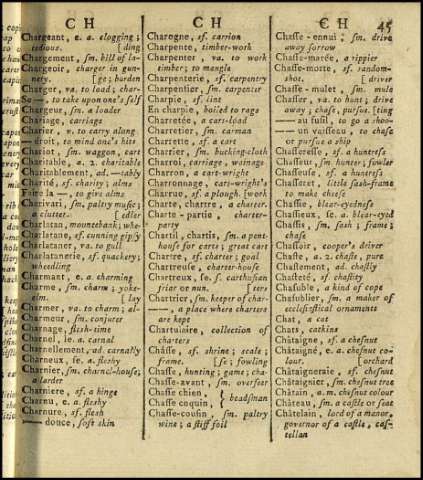 CH
CH
CH
45
Chargeant, e. a. clogging;
tedious. [ding
Chargement, sm. bill of la-
Chargeoir, charger in gun-
nery. [ge; burden
Charger, va. to load; char-
Se —, to take upon one's self
Chargeur, sm. a loader
Chariage, carriage
Charier, v. to carry along
— droit, to mind one's hits
Chariot, sm. waggon, cart
Charitable, a. 2. charitable
Charitablement, ad. —tably
Charité, sf. charity; alms
Faire la —, to give alms
Charivari, sm. paltry music;
a clutter. [edler
Charlatan, mountebank; whe-
Charlatane, sf. cunning gipsy
Charlataner, va. to gull
Charlatanerie, sf. quackery;
wheedling
Charmant, e. a. charming
Charme, sm. charm; yoke-
elm. [lay
Charmer, va. to charm; al-
Charmeur, sm. conjurer
Charnage, flesh-time
Charnel, le. a. carnal
Charnellement, ad. carnally
Charneux, se. a. fleshy
Charnier, sm. charnel-house;
a larder
Charniere, sf. a hinge
Charnu, e. a. fleshy
Charnure, sf. flesh
— douce, soft skin
Charogne, sf. carrion
Charpente, timber-work
Charpenter, va. to work
timber; to mangle
Charpenterie, sf. carpentry
Charpentier, sm. carpenter
Charpie, sf. lint
En charpie, boiled to rags
Charretée, a carts-load
Charretier, sm. carman
Charrette, sf. a cart
Charrier, sm. bucking-cloth
Charroi, carriage, wainage
Charron, a cart-wright
Charronnage, cart-wright's
Charrue, sf. a plough, [work
Charte, chartre, a charter.
Charte-partie, charter-
party
Chartil, chartis, sm. a pent-
house for carts; great cart
Chartre, sf. charter; goal
Chartreuse, charter-house
Chartreux, se. s. carthusian
friar or nun. [ters
Chartrier, sm. keeper of char-
——, a place where charters
are kept
Chartulaire, collection of
charters
Châsse, sf. shrine; scale;
frame. [se; fowling
Chasse, hunting; game; cha-
Chasse-avant, sm. overseer
Chasse chien, }
Chasse coquin, } beadsman
Chasse-cousin, sm. paltry
wine; a stiff foil
Chasse-ennui, sm. drive
away sorrow
Chasse-marée, a rippier
Chasse-morte, sf. random-
shot. [driver
Chasse-mulet, sm. mule
Chasser, va. to hunt; drive
away; chase, pursue. [ting
— au fusil, to go a shoo-
— un vaisseau, to chase
or pursue a ship
Chasseresse, sf. a huntress
Chasseur, sm. hunter; fowler
Chasseuse, sf. a huntress
Chasseret, little sash-frame
to make cheese
Chassie, blear-eyedness
Chassieux, se. a. blear-eyed
Chassis, sm. sash; frame;
chase
Chassoir, cooper's driver
Chaste, a. 2. chaste, pure
Chastement, ad. chastly
Chasteté, sf. chastity
Chasuble, a kind of cope
Chasublier, sm. a maker of
ecclesiastical ornaments
Chat, a cat
Chats, catkins
Châtaigne, sf. a chesnut
Châtaigné, e. a. chesnut co-
lour. [orchard
Châtaigneraie, sf. chesnut
Châtaignier, sm. chesnut tree
Châtain, a. m. chesnut colour
Château, sm. a castle or seat
Châtelain, lord of a manor,
governor of a castle, cas-
tellan